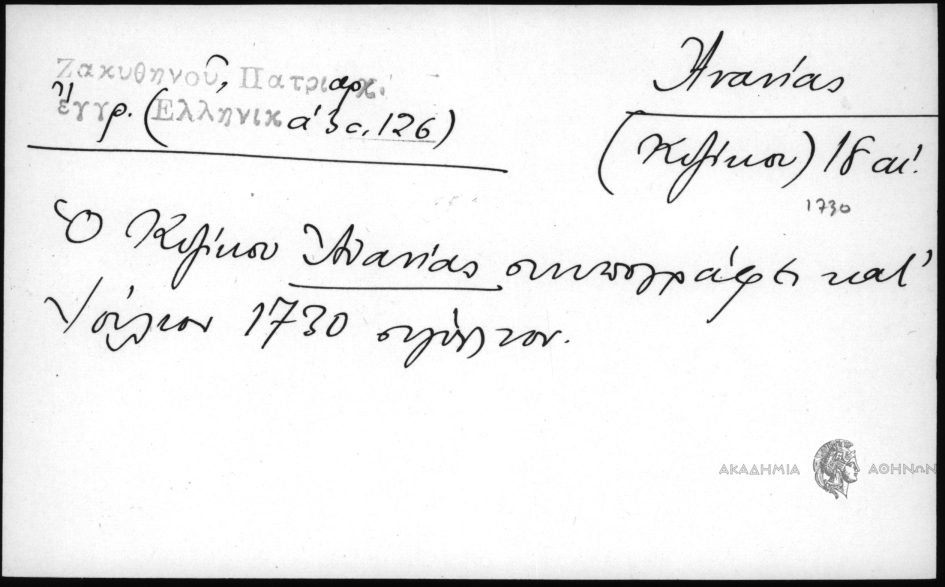 Ζακυθηνοῦ, Πατριαρχ.
ἔγγρ. (Ἑλληνικά 3 σ. 126)
Ἀνανίας
(Κυζίκου) 18 αἰ.
1730
Ὁ Κυζίκου Ἀνανίας συνυπογράφει κατ'
Ἰούλιον 1730 σιγίλλιον.
ΑΚΑΔΗΜΙΑ ΑΘΗΝΩΝ